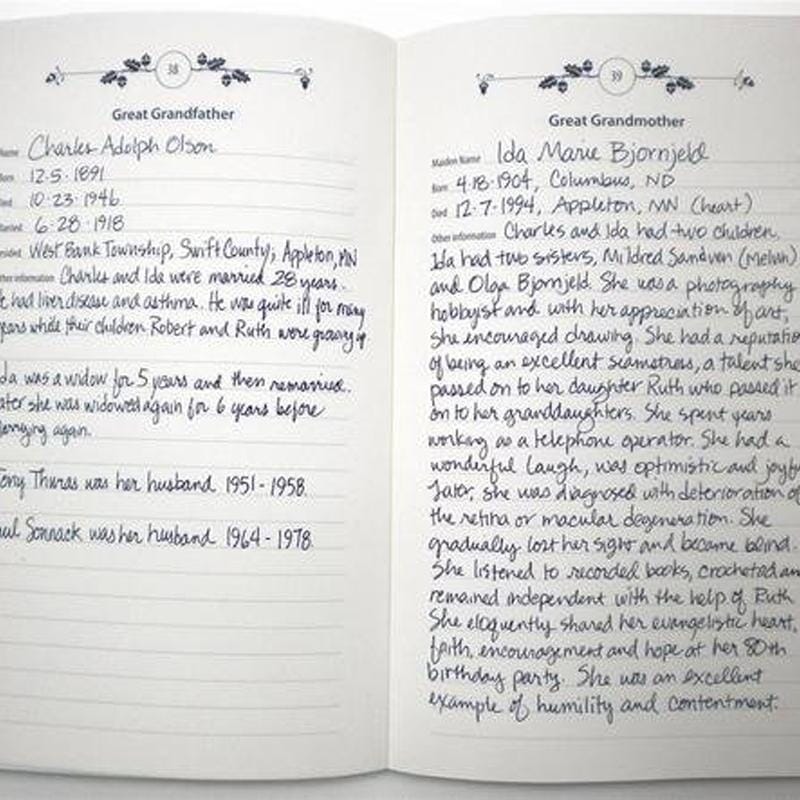 38
Great Grandfather
Name Charles Adolph Olson
Born 12·5·1891
Died 10·23·1946
Married 6·28·1918
Resided West Bank Township, Swift County; Appleton, MN
Other information Charles and Ida were married 28 years.
He had liver disease and asthma. He was quite ill for many
years while their children Robert and Ruth were growing up
Ida was a widow for 5 years and then remarried.
Later she was widowed again for 6 years before
Marrying again.
Tony Thuras was her husband 1951-1958.
Paul Sonnack was her husband 1964-1978.
39
Great Grandmother
Maiden Name Ida Marie Bjornjeld
Born 4·18·1904, Columbus, ND
Died 12·7·1994, Appleton, MN (heart)
Other information Charles and Ida had two children.
Ida had two sisters, Mildred Sandven (Melvin)
and Olga Bjornjeld. She was a photography
hobbyist and with her appreciation of art,
she encouraged drawing. She had a reputation
of being an excellent seamstress, a talent she
passed on to her daughter Ruth who passed it
on to her granddaughters. She spent years
working as a telephone operator. She had a
wonderful laugh, was optimistic and joyful
Later, she was diagnosed with deterioration of
the retina or macular degeneration. She
gradually lost her sight and became blind.
She listened to recorded books, crocheted and
remained independent with the help of Ruth
She eloquently shared her evangelistic heart,
faith, encouragement and hope at her 80th
birthday party. She was an excellent
example of humility and contentment.